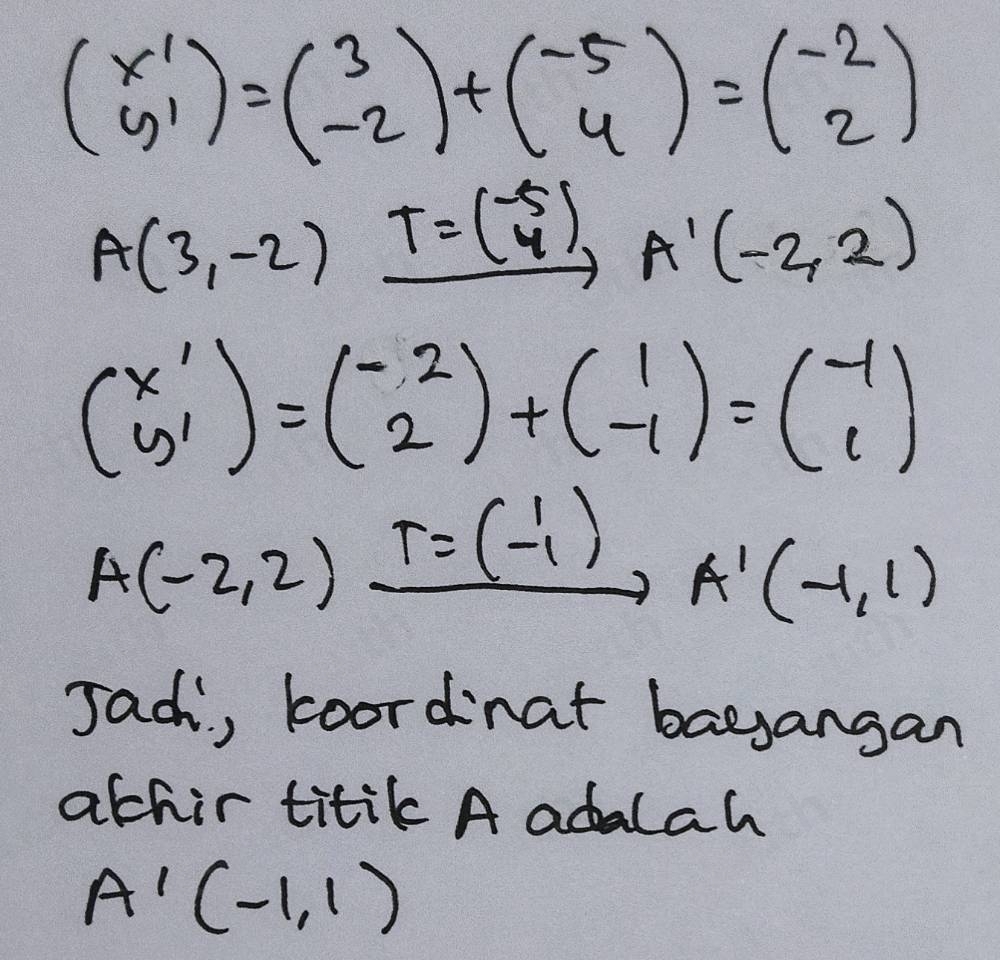 (x' y') = (3 -2) + (-5 4) = (-2 2)
A(3,-2) T=(-5 4) → A'(-2,2)
(x' y') = (-2 2) + (1 -1) = (-1 1)
A(-2,2) T=(1 -1) → A'(-1,1)
Jadi, koordinat bayangan
akhir titik A adalah
A'(-1,1)